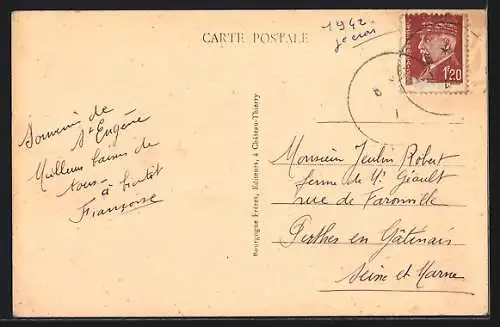 CARTE POSTALE
1942
1F20
Souvenir de
St Eugène
Meilleurs baisers de
tous -
à bientôt
Françoise
Bourgogne Frères, Editeurs, à Château-Thierry
Monsieur Jeulin Robert
ferme de Mr Géault
rue de Faronville
Perthes en Gâtinais
Seine et Marne